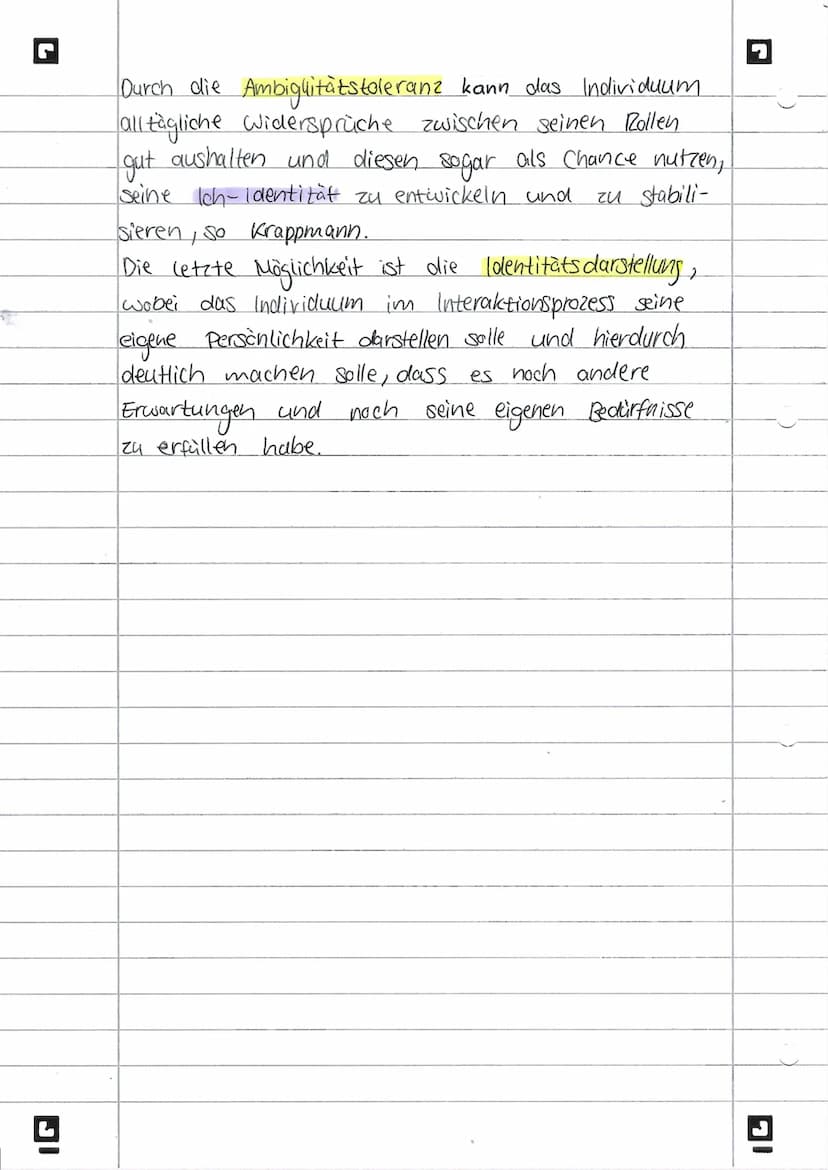 Durch die Ambiguitätstoleranz kann das Individuum
alltägliche Widersprüche zwischen seinen Rollen
gut aushalten und diesen sogar als Chance nutzen,
seine Ich-Identität zu entwickeln und zu stabili-
sieren, so Krappmann.
Die letzte Möglichkeit ist die Identitätsdarstellung,
wobei das Individuum im Interaktionsprozess seine
eigene Persönlichkeit darstellen solle und hierdurch
deutlich machen solle, dass es noch andere
Erwartungen und noch seine eigenen Bedürfnisse
zu erfüllen habe.